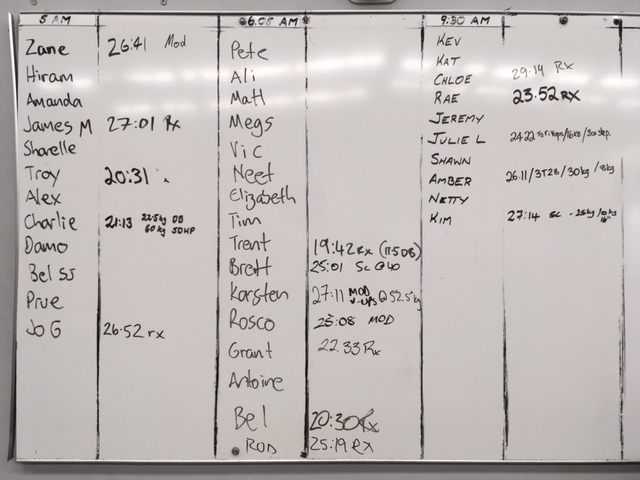 5 AM
Zane 26:41 Mod
Hiram
Amanda
James M 27:01 Rx
Sharelle
Troy 20:31
Alex
Charlie 21:13 22.5kg DB
60kg SDHP
Damo
Bel SS
Prue
Jo G 26.52 rx
6.05 AM
Pete
Ali
Matt
Megs
Vic
Neet
Elizabeth
Tim
Trent 19:42 Rx
Brett 25:01 Sc @40
Karsten 27:11 MOD
V-UPS @52.5kg
Rosco 25:08 MOD
Grant 22.33 Rx
Antoine
Bel 20:30 Rx
ROD 25:19 RX
9:30 AM
KEV
KAT
CHLOE 29.14 RX
RAE 23.52 RX
JEREMY
JULIE L 24.22
SHAWN
AMBER 26.11/3T2B/30kg
NETTY
KIM 27:14 SC